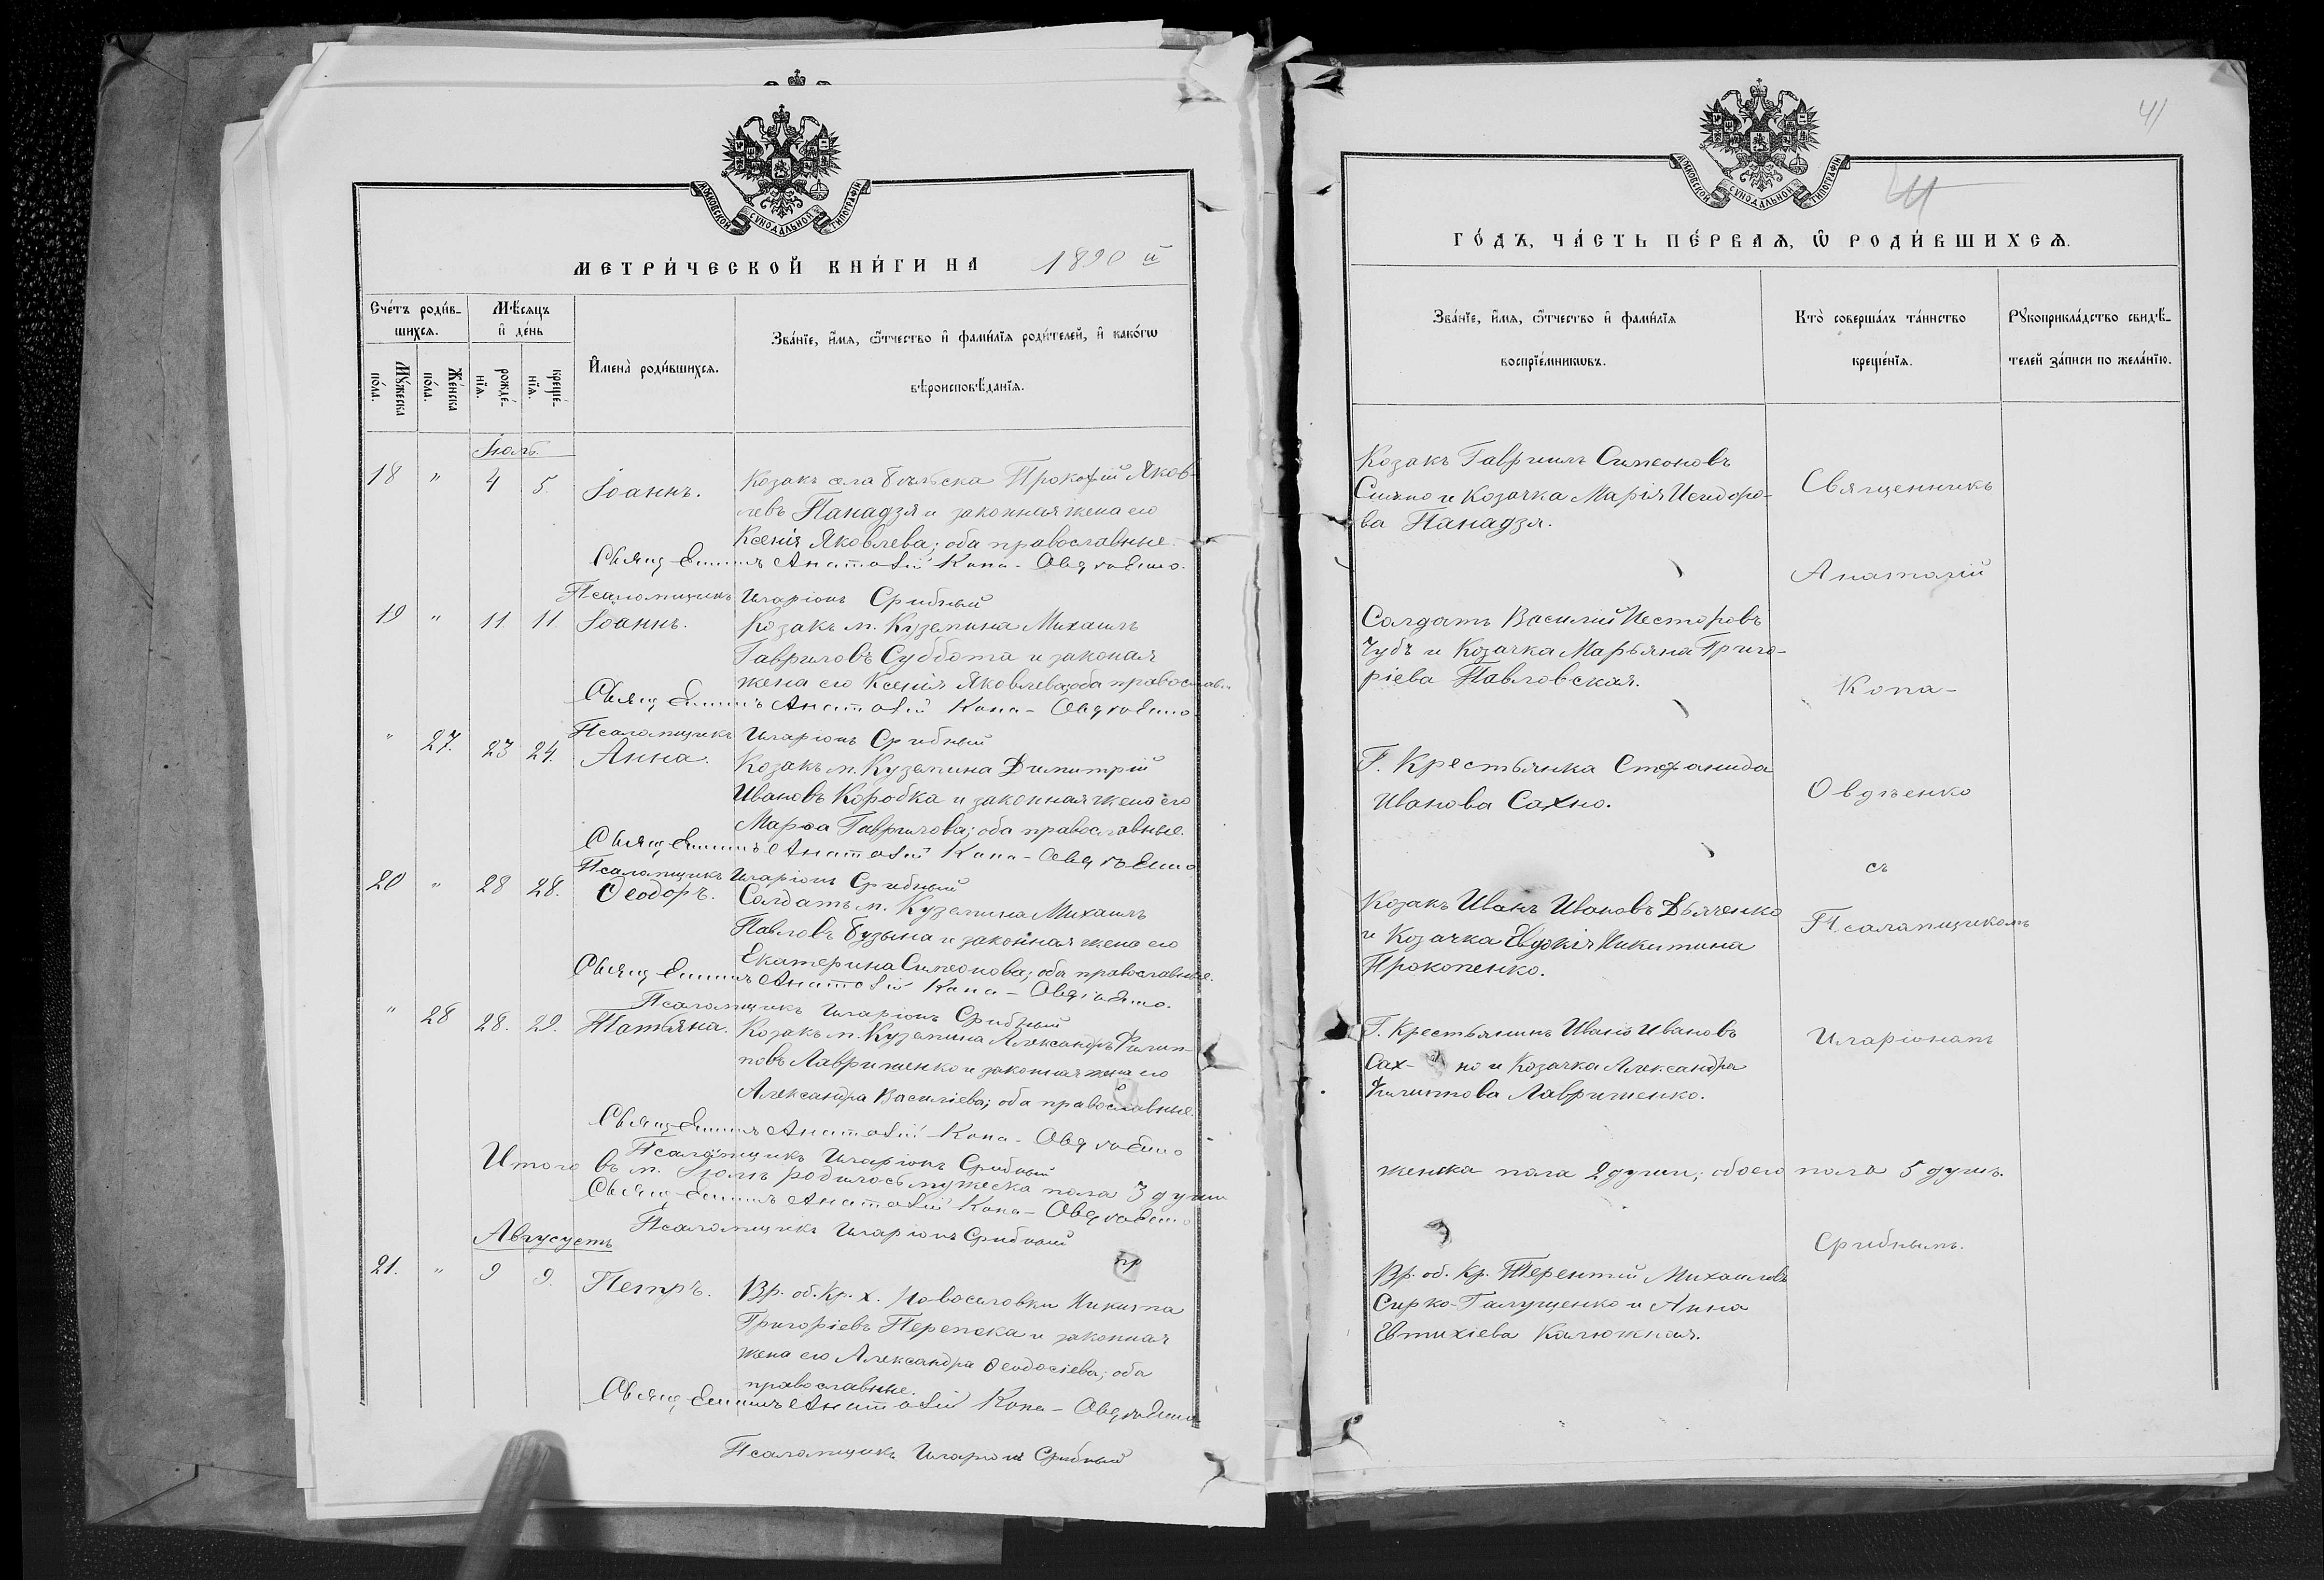 МОСКОВСКОЙ СѴНОДАЛЬНОЙ ТИПОГРАФІИ
МЕТРИ́ЧЕСКОЙ КНИ́ГИ НА 1890 й
Сче́тъ роди́в-
шихсѧ.
Мѣ́сѧцъ
и҆ де́нь
Мꙋ́жеска
по́ла.
Же́нска
по́ла.
рожде́-
нїѧ.
креще́-
нїѧ.
И҆мена̀ роди́вшихсѧ.
Зва́нїе, и҆́мѧ, ѻ҆́тчество и҆ фами́лїѧ роди́телей, и҆ како́гѡ
вѣроисповѣ́данїѧ.
Іюль.
18 " 4 5. Іоаннъ. Козакъ села Бѣльска Прокофій Яков-
левъ Панадзя и законная жена его
Ксенія Яковлева; оба православные.
Священникъ Анатолій Копа-Овдѣенко.
Псаломщикъ Иларіонъ Срибный
19 " 11 11 Іоаннъ. Козакъ м. Куземина Михаилъ
Гавриловъ Суббота и законая
жена его Ксенія Яковлева; оба православн.
Священникъ Анатолій Копа-Овдѣенко.
Псаломщикъ Иларіонъ Срибный
" 27. 23 24. Анна. Козакъ м. Куземина Димитрій
Ивановъ Коробка и законная жена его
Марѳа Гаврилова; оба православные.
Священникъ Анатолій Копа-Овдѣенко
Псаломщикъ Иларіонъ Срибный
20 " 28 28. Ѳеодоръ. Солдатъ м. Куземина Михаилъ
Павловъ Бузына и законная жена его
Екатерина Симеонова; оба православные.
Священникъ Анатолій Копа-Овдѣенко.
Псаломщикъ Иларіонъ Срибный
" 28 28. 29. Татьяна. Козакъ м. Куземина Александръ Филип-
повъ Лавриненко и законная жена его
Александра Василіева; оба православные.
Священникъ Анатолій Копа-Овдѣенко
Псаломщикъ Иларіонъ Срибный
Итого въ м. Іюлѣ родилось мужеска пола 3 души
Священникъ Анатолій Копа-Овдѣенко
Псаломщикъ Иларіонъ Срибный
Августъ
21. " 9 9. Петръ. Вр. об. Кр. х. Новоселовки Никита
Григоріевъ Перепека и законная
жена его Александра Ѳеодосіева; оба
православные.
Священникъ Анатолій Копа-Овдѣенко
Псаломщикъ Иларіонъ Срибный
41
МОСКОВСКОЙ СѴНОДАЛЬНОЙ ТИПОГРАФІИ
ГО́ДЪ, ЧА́СТЬ ПЕ́РВАѦ, Ѡ҆ РОДИ́ВШИХСѦ.
Зва́нїе, и҆́мѧ, ѻ҆́тчество и҆ фами́лїѧ
воспрїе́мникѡвъ.
Кто̀ соверша́лъ та́инство
креще́нїѧ.
Рꙋкоприкла́дство свидѣ́-
телей за́писи по жела́нїю.
Козакъ Гавріилъ Симеоновъ
и Козачка Марія Исидоро-
ва Панадзя.
Солдатъ Василій Несторовъ
Чубъ и Козачка Марьяна Григо-
ріева Павловская.
Г. Крестьянка Стефанида
Иванова Сахно.
Козакъ Иванъ Ивановъ Дьяченко
и Козачка Евдокія Никитина
Прокопенко.
Г. Крестьянинъ Иванъ Ивановъ
Сах-но и Козачка Александра
Филиппова Лавриненко.
женска пола 2 души; обоего пола 5 душъ.
Вр. об. Кр. Терентій Михаиловъ
Сирко-Галущенко и Анна
Евтихіева Калюжная.
Священникъ
Анатолій
Копа-
Овдѣенко
съ
Псаломщикомъ
Иларіономъ
Срибнымъ.